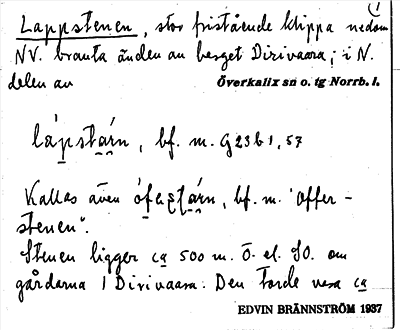 1
Lappstenen, stor fristående klippa nedom
NV. branta änden av berget Dirivaara; i N.
delen av Överkalix sn o. tg Norrb. l.
lápstàrn, bf. m. G23b1, 57
Kallas även ófəʂtárn, bf. m. "Offer-
stenen".
Stenen ligger ca 500 m. Ö. el. SO. om
gårdarna i Dirivaara. Den torde vara ca
EDVIN BRÄNNSTRÖM 1937